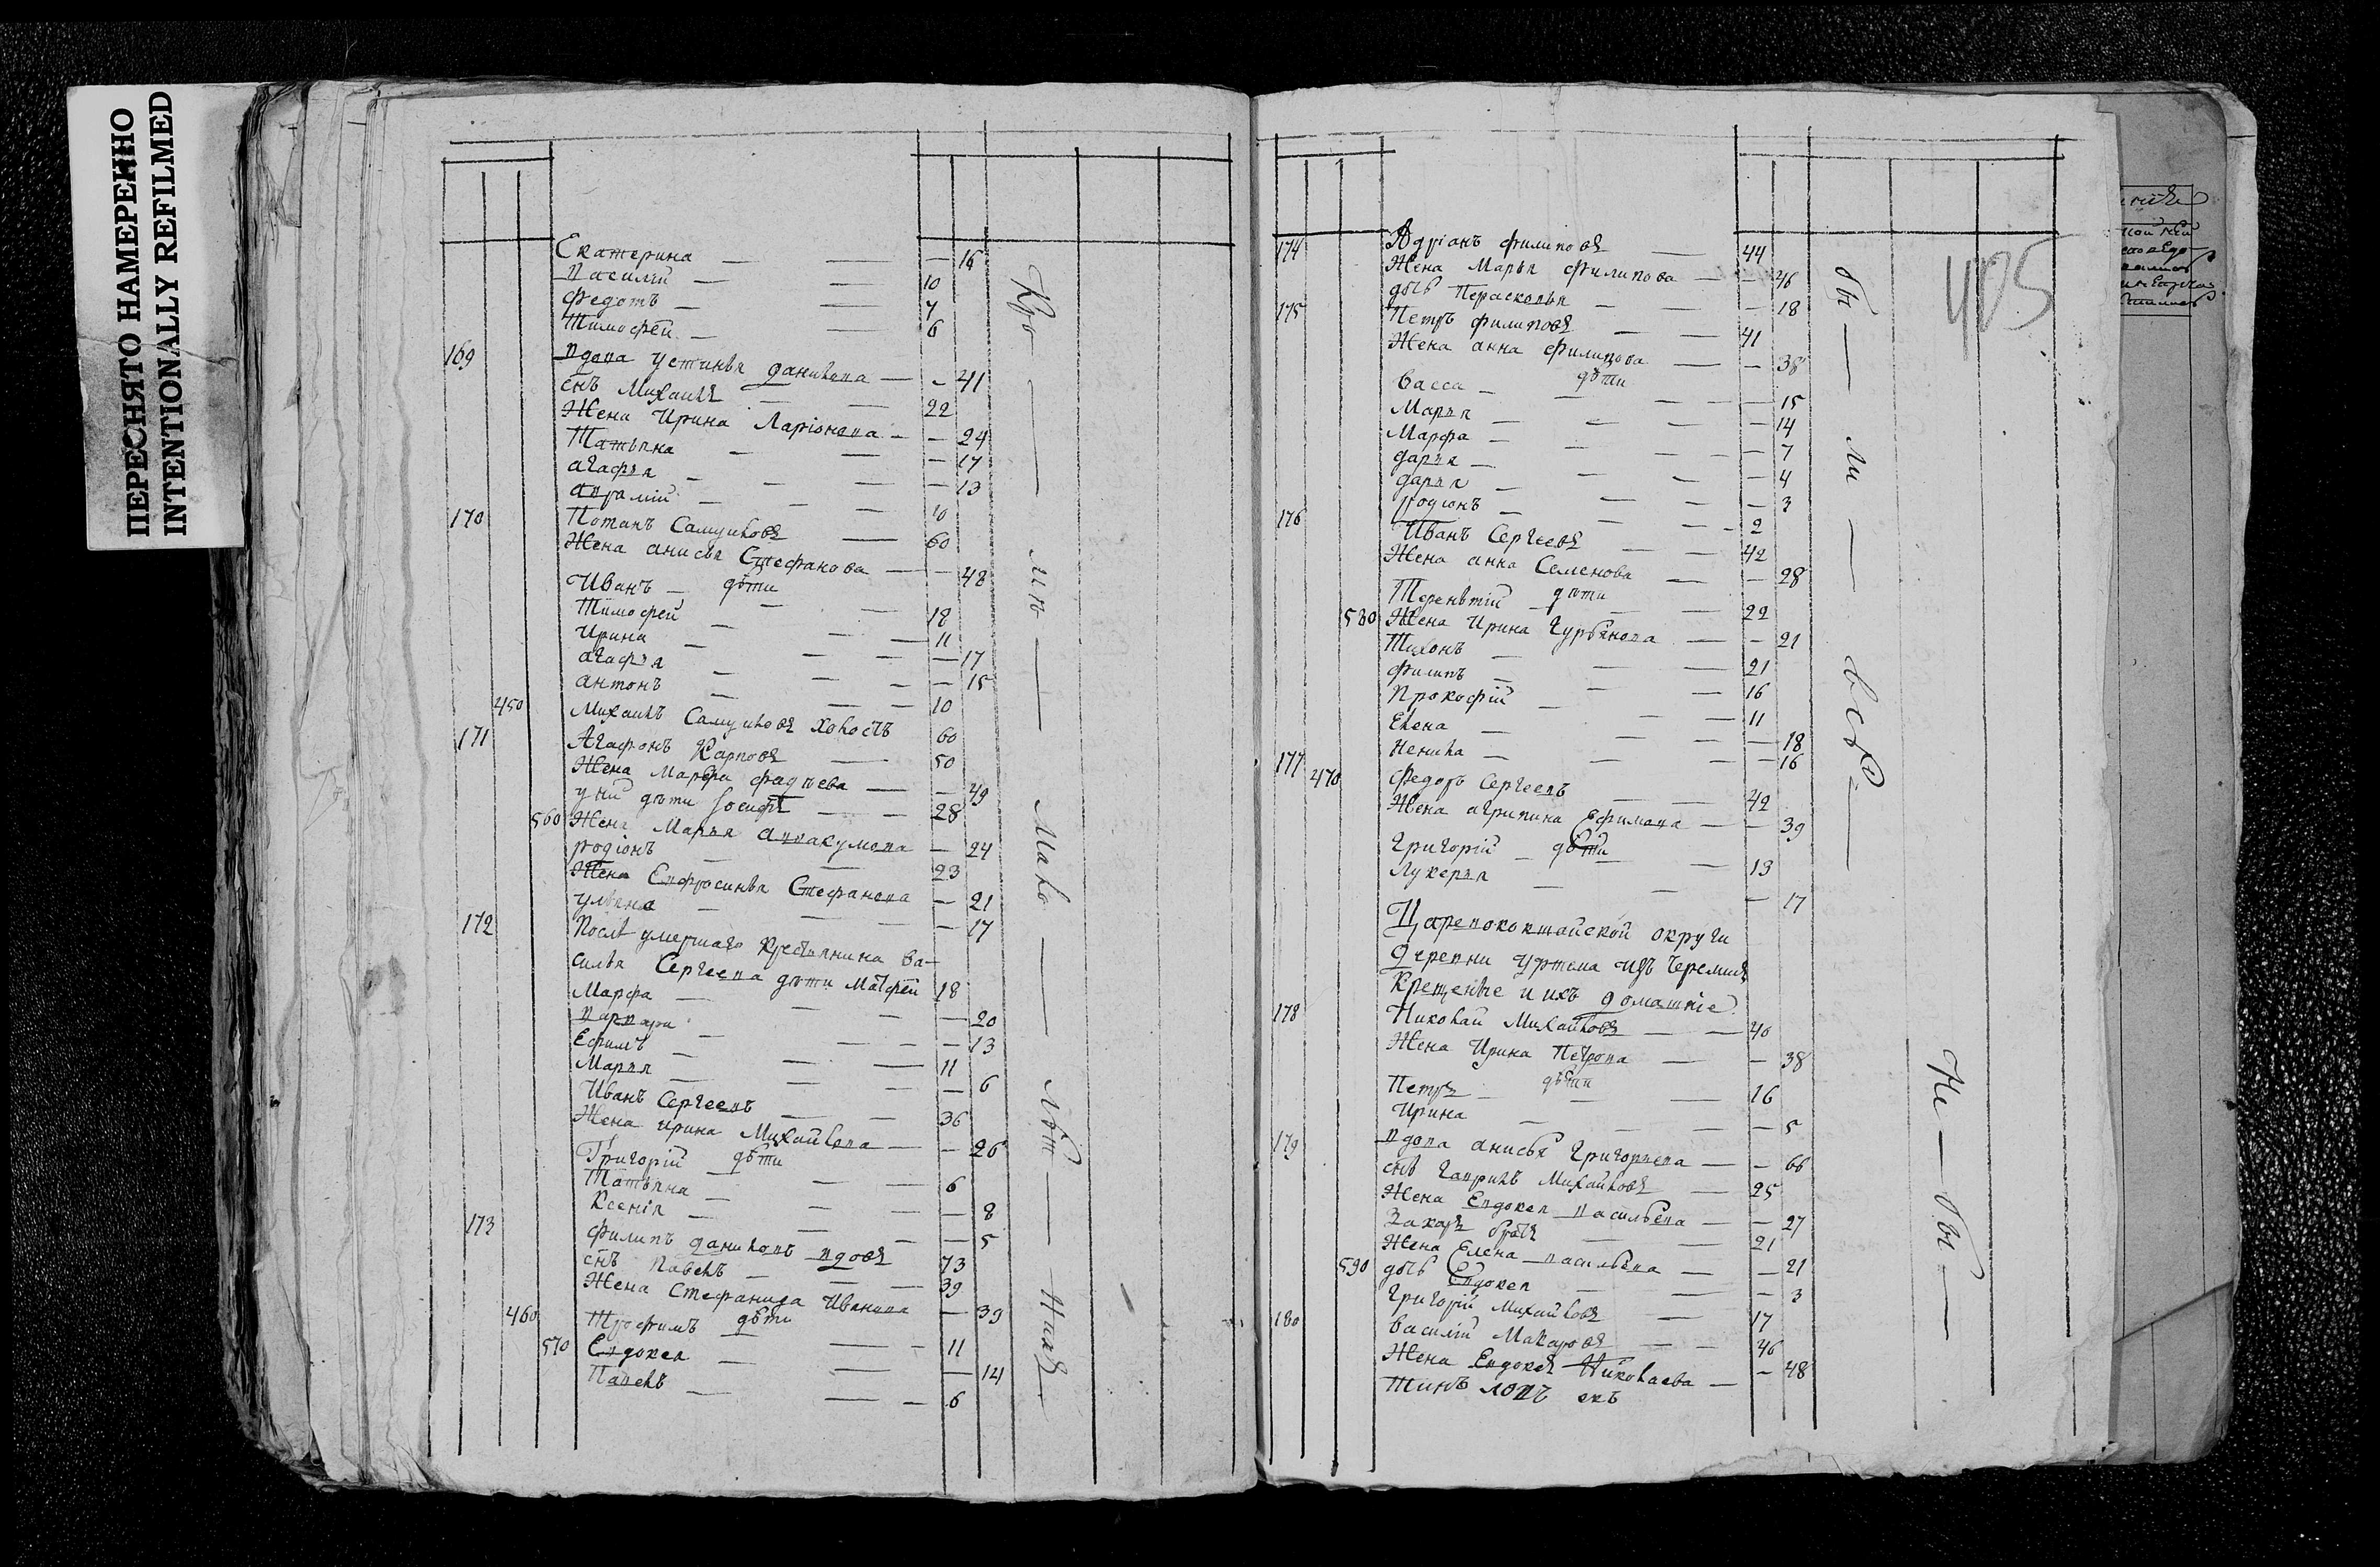 ПЕРЕСНЯТО НАМЕРЕННО
INTENTIONALLY REFILMED
Екатерина — — — 16
Василій — — 10
Федотъ — — 7
Тимофей — — 6
169 вдова Устинья Данилова — — 41
снъ Михаилъ — — 22
Жена Ирина Ларіонова — — 24
Татьяна — — — 17
агафья — — — 13
аврамій — — 10
170 Потапъ Самуиловъ — 60
Жена анисья Стефанова — — 48
дѣти
Иванъ — — 18
Тимофей — — 11
Ирина — — — 17
агафья — — — 15
антонъ — — 10
450 Михаилъ Самуиловъ холостъ 60
171 Агафонъ Карповъ — 50
Жена Марфа фадѣева — — 49
у ній дѣти Іосифъ — — 28
560 Жена Марья аввакумова — 24
родіонъ — — 23
Жена Евфросинья Стефанова — 21
ульяна — — — 17
172 Послѣ умершаго крестьянина Ва-
силья Сергеева дѣти Матфей 18
Марфа — — — 20
варвара — — — 13
Ефимъ — — 11
Марья — — — 6
Иванъ Сергеевъ — — 36
Жена ирина Михайлова — — 26
дѣти
Григорій — — 6
Татьяна — — — 8
Ксенія — — — 5
173 филипъ даниловъ вдовъ 73
снъ Павелъ — — 39
Жена Стефанида Иванова — 39
дѣти
460 Трофимъ — — 11
570 Евдокея — — — 14
Павелъ — — 6
Кро — мѣ — мало — лѣт — нихъ
405
174 Адріанъ филиповъ — 44
Жена Марья Филипова — — 46
дочь Парасковья — — 18
175 Петръ филиповъ — — 41
Жена анна филипова — — 38
дѣти
Васса — — — 15
Марья — — — 14
Марфа — — — 7
дарья — — — 4
дарья — — — 3
родіонъ — — 2
176 Иванъ Сергеевъ — — 42
Жена анна Семенова — — 28
дѣти
Терентій — — 22
580 Жена Ирина Гурьянова — — 21
Тихонъ — — 21
филипъ — — 16
Прокофій — — 11
Елена — — — 18
Ненила — — — 16
177 470 Федоръ Сергеевъ — — 42
Жена агрипина Ефимова — — 39
дѣти
Григорій — — 13
Лукерья — — — 17
Царевококшайской округи
деревни Уртема изъ Черемисъ
Крещеные и ихъ домашніе
178 Николай Михайловъ — — 40
Жена Ирина Петрова — — 38
дѣти
Петръ — — 16
Ирина — — — 5
179 вдова анисья Григорьева — — 66
снъ Гаврилъ Михайловъ — 25
Жена Евдокея васильева — — 27
Захаръ братъ — — 21
Жена Елена васильева — — 21
590 дочь Евдокея — — 3
Григорій Михайловъ — 17
180 Василій Макаровъ — — 46
Жена Евдокея Николаева — — 48
бы — ли — всѣ —
Не — бы —